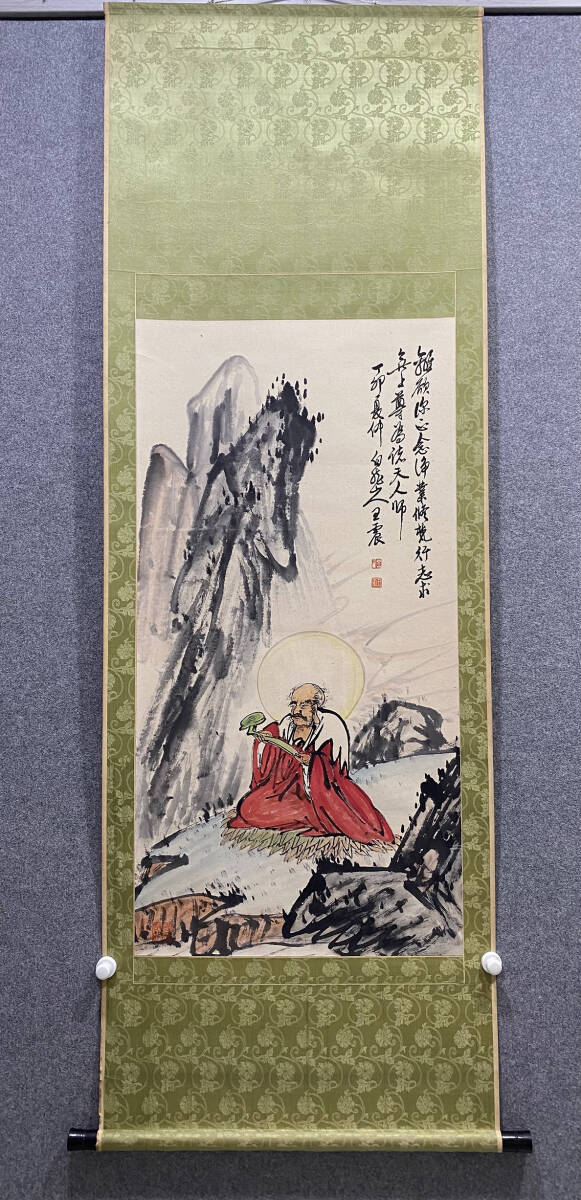 離欲深正念淨業修梵行志求
無上尊為諸天人師
丁卯夏仲白龍山人王震